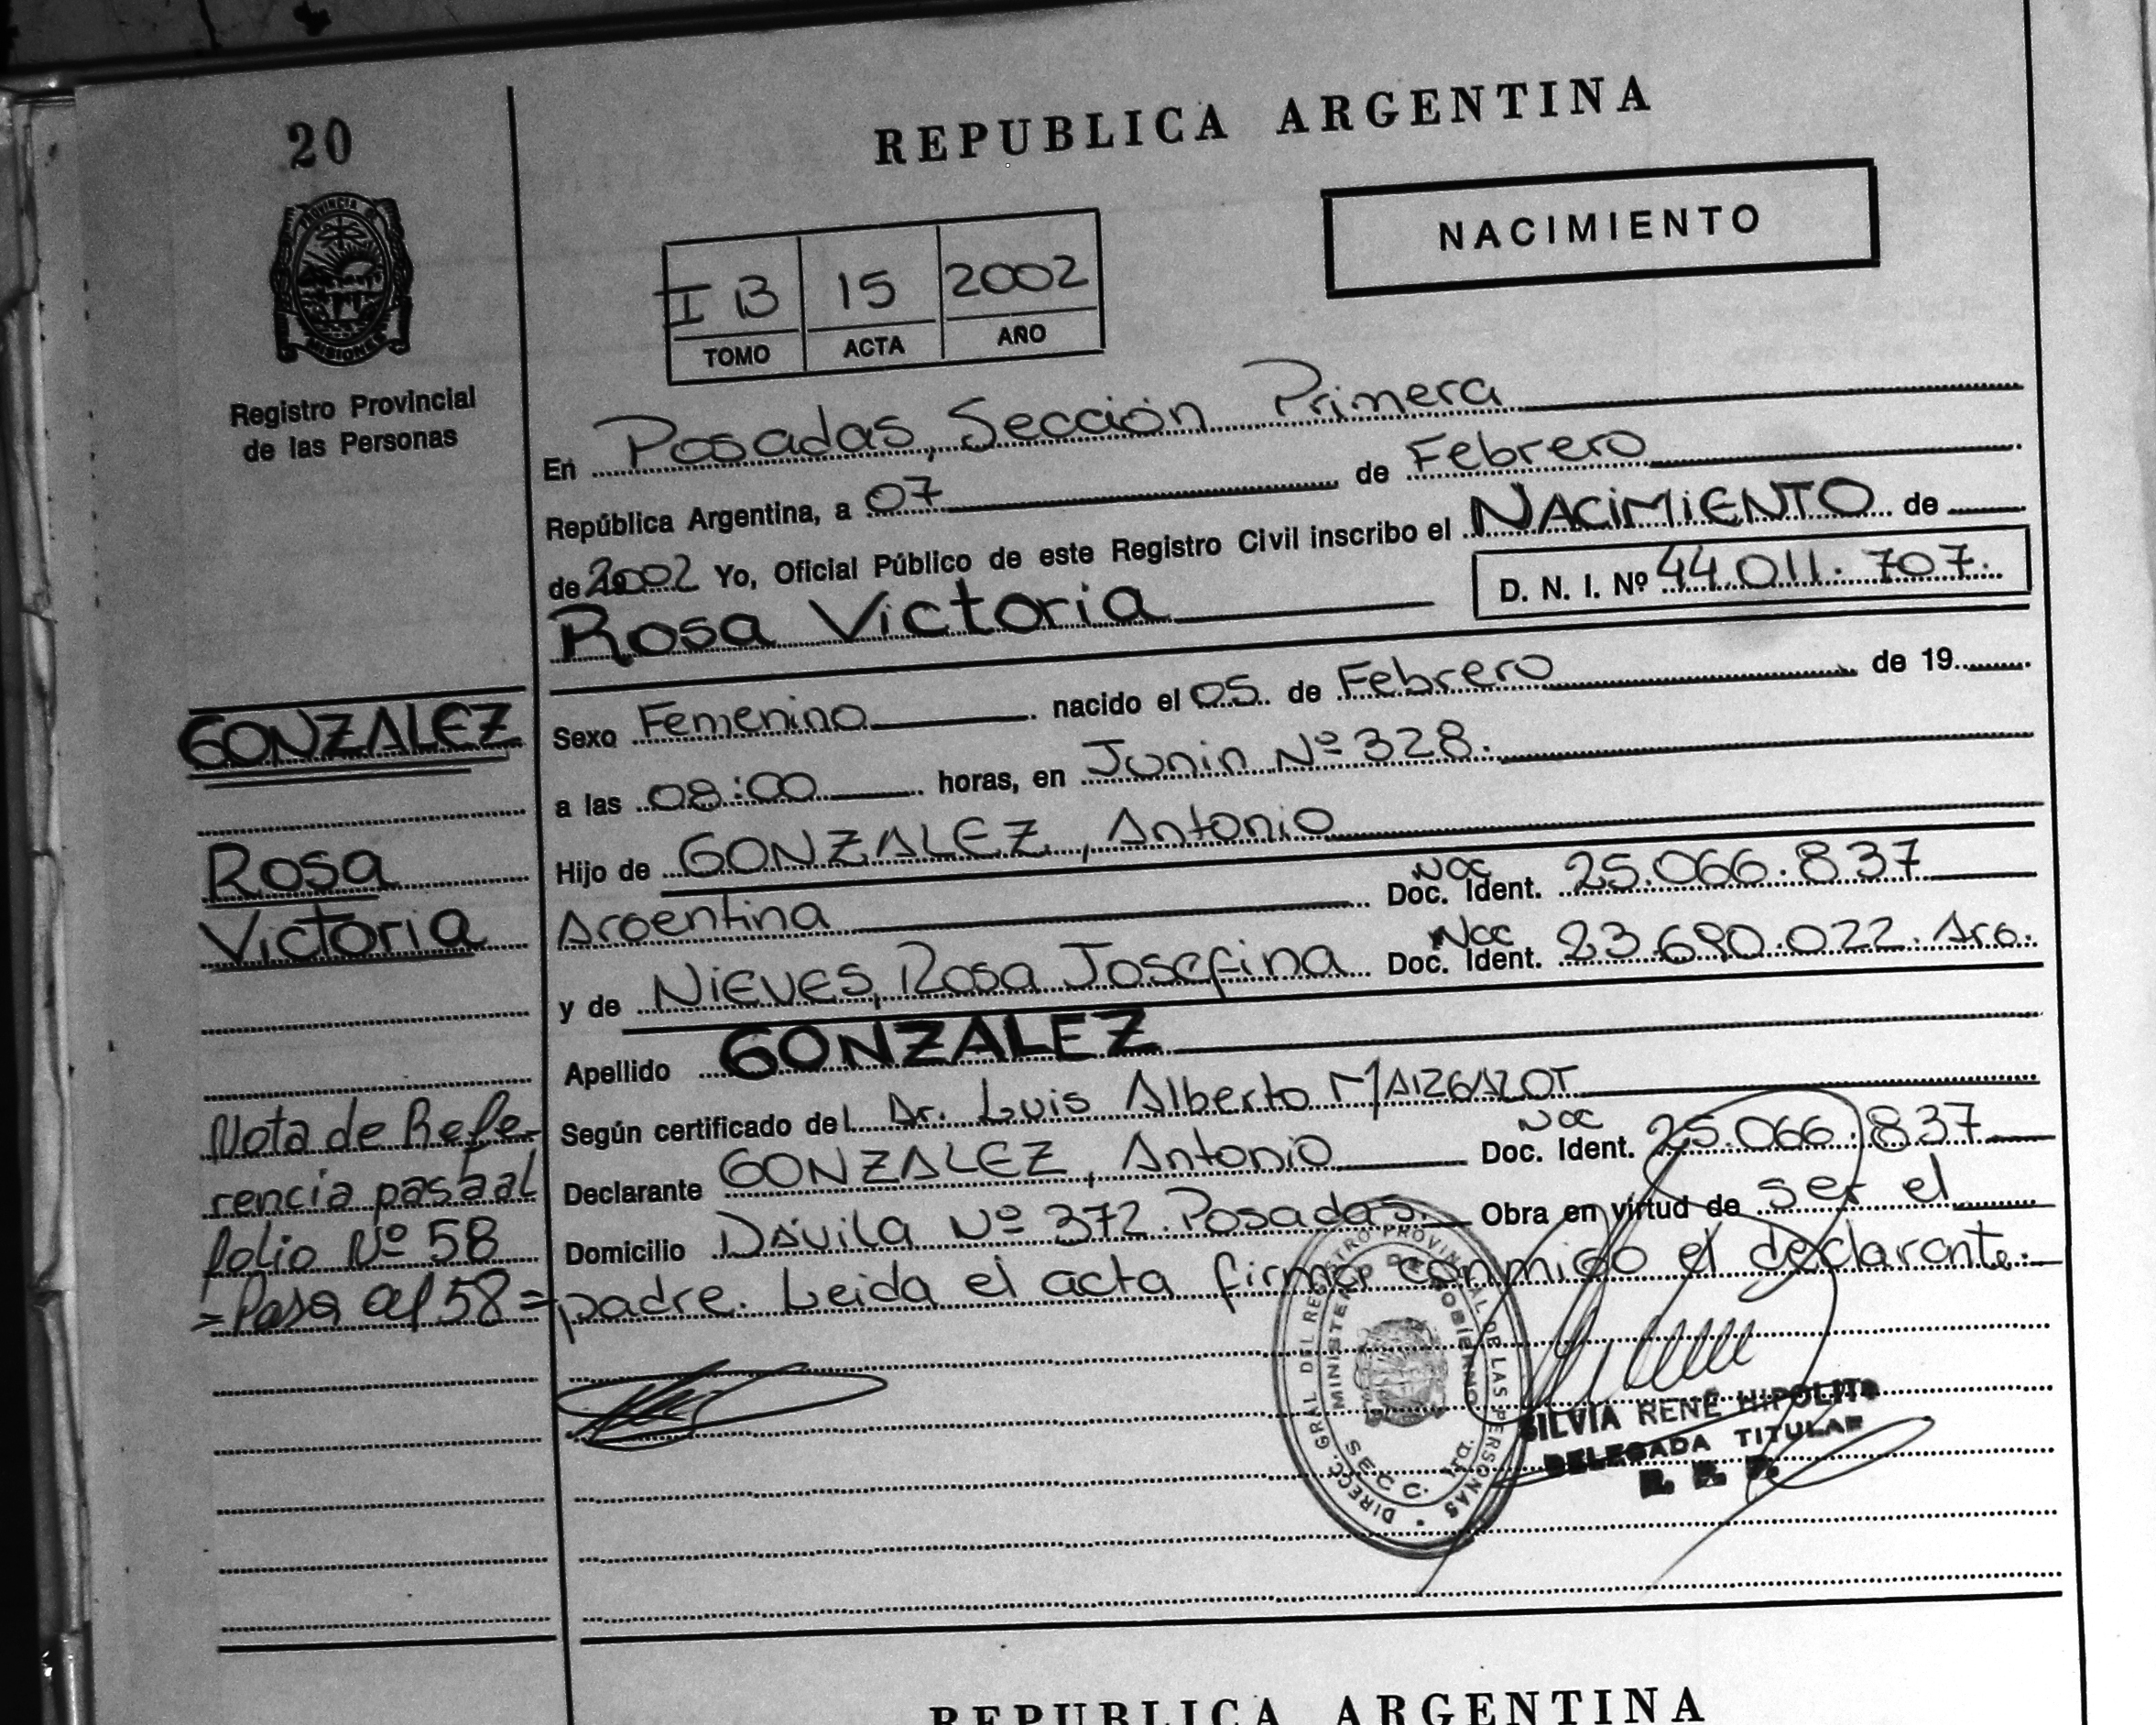 20
REPUBLICA ARGENTINA
NACIMIENTO
I B 15 2002
TOMO ACTA AÑO
PROVINCIA DE
MISIONES
Registro Provincial
de las Personas
En Posadas, Sección Primera
República Argentina, a 07 de Febrero
de 2002 Yo, Oficial Público de este Registro Civil inscribo el NACIMIENTO de
Rosa Victoria
D. N. I. Nº 44.011.707.
GONZALEZ
Rosa
Victoria
Sexo Femenino nacido el 05 de Febrero de 19
a las 08:00 horas, en Junin Nº 328.
Hijo de GONZALEZ, Antonio
Argentina Doc. Ident. 25.066.837
y de NIEVES, Rosa Josefina Doc. Ident. 23.690.022. Arg.
Apellido GONZALEZ
Según certificado del Dr. Luis Alberto
Declarante GONZALEZ, Antonio Doc. Ident. 25.066.837
Domicilio Dávila Nº 372. Posadas. Obra en virtud de ser el
padre. Leida el acta firma conmigo el declarante.
Nota de Refe-
rencia pasa al
folio Nº 58
=Pasa al 58=
DIRECC. GRAL. DEL REGISTRO PROVINCIAL DE LAS PERSONAS
MINISTERIO DE GOBIERNO
SECC. 1ra.
SILVIA RENÉ HIPOLITO
DELEGADA TITULAR
R. P. P.
REPUBLICA ARGENTINA